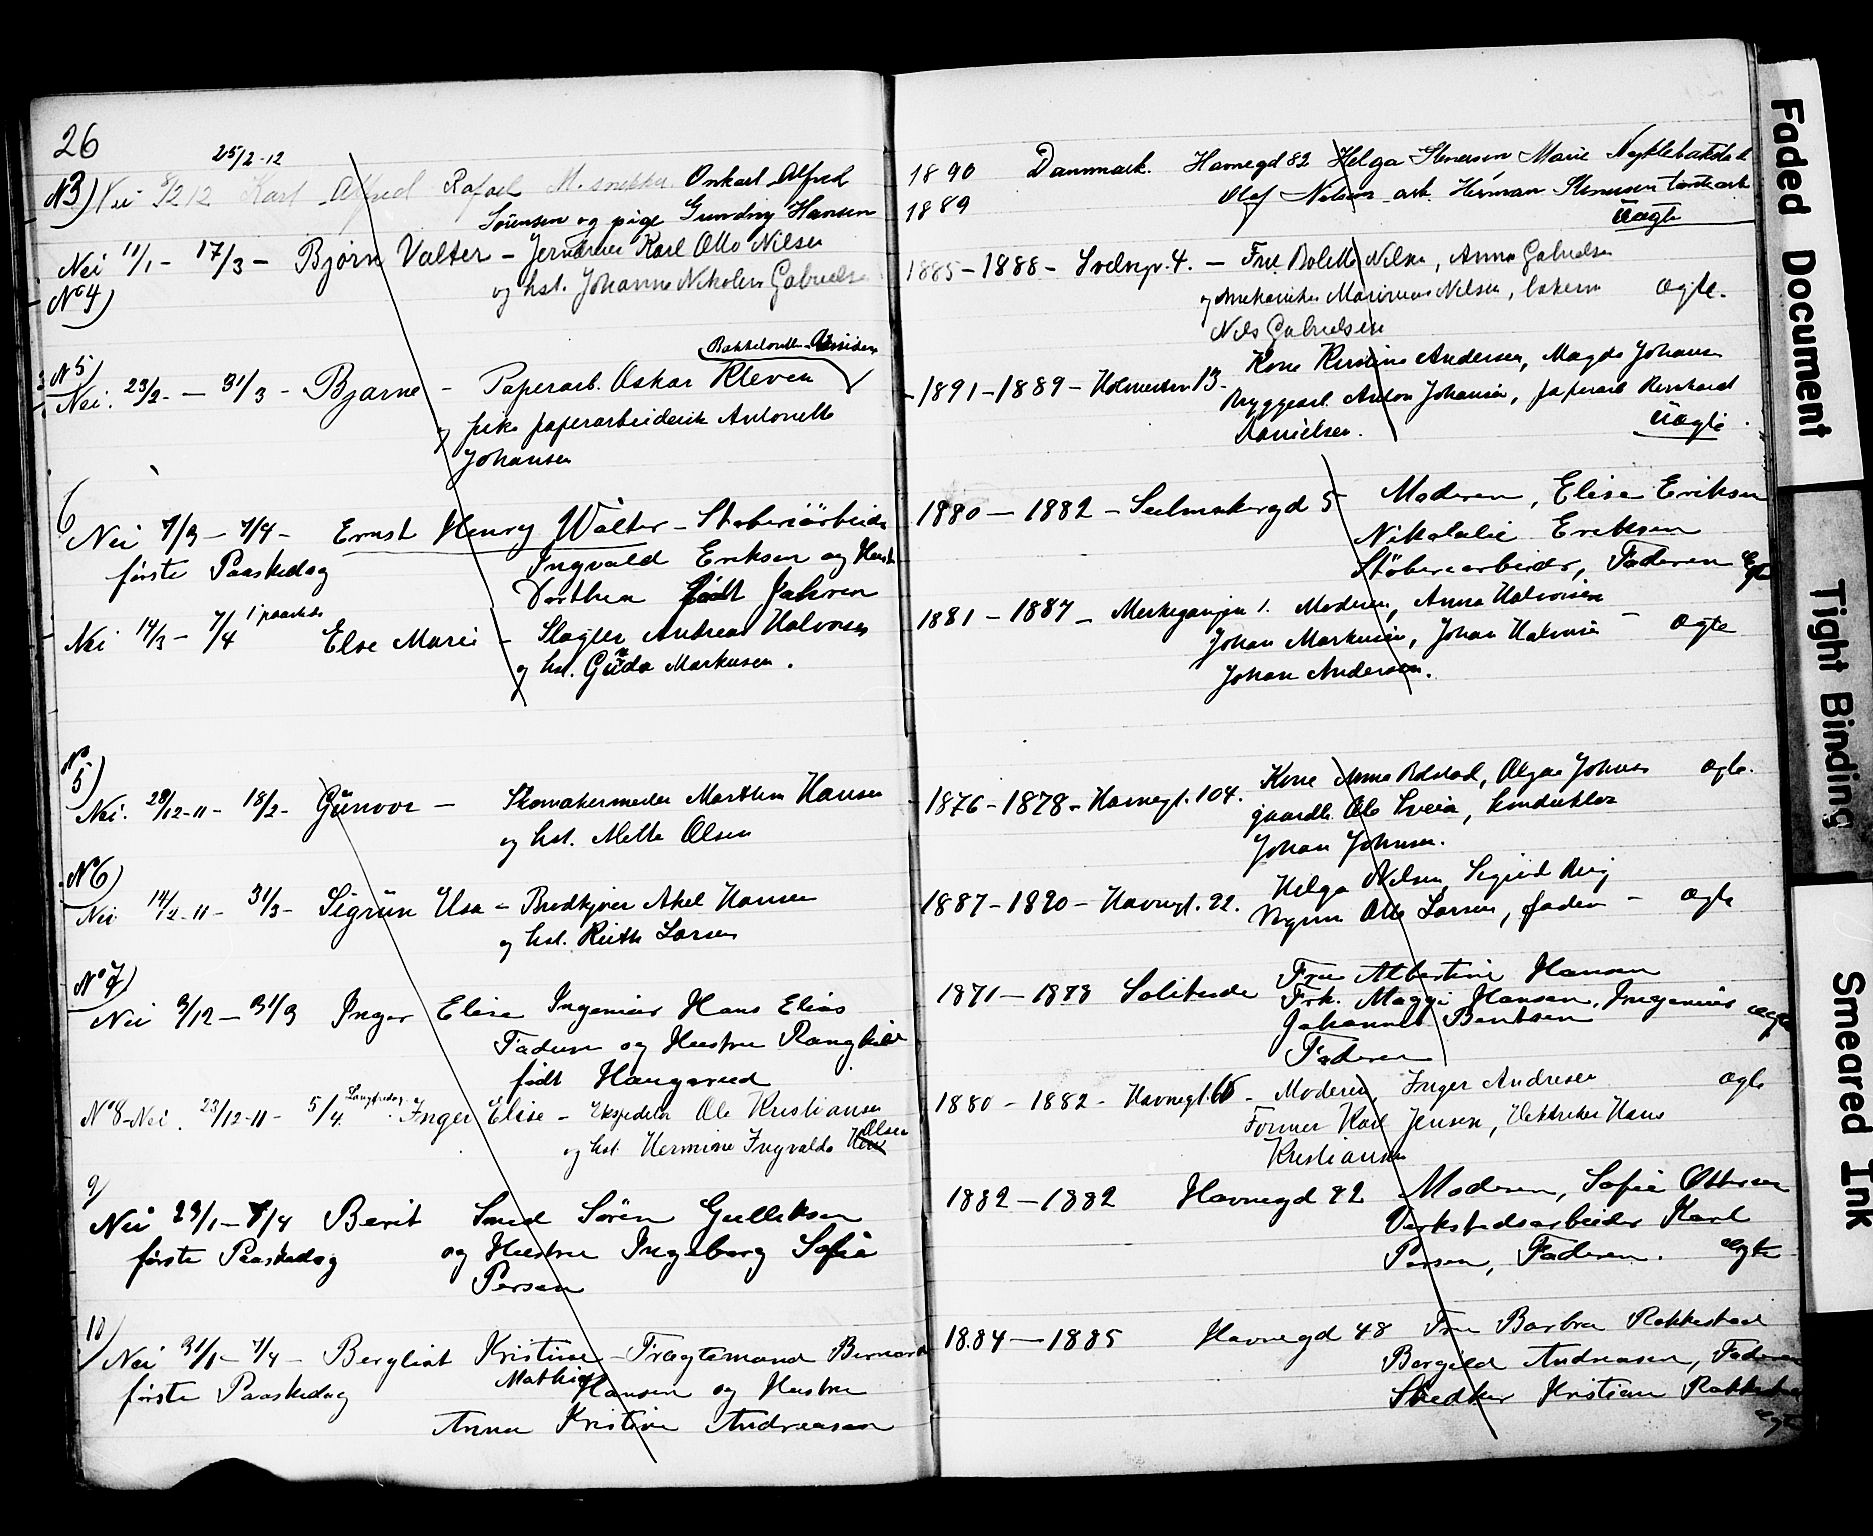 26
25/2-12
N3) Nei 8/2 12 Karl Alfred Rafael M. snekker Onkarl Alfred
Sørensen og pige Gundny Hansen
Nei 11/1 - 17/3 - Bjørn Valter - Jerndreier Karl Otto Nilsen
No 4) og hst. Johanne Nikoline Gabrielsen
N5)
Nei. 23/2 - 31/3 - Bjarne - Paperarb. Oskar Kleven
og pike paperarbeiderske Antonette
Johansen
6
Nei 7/3 - 7/4 - Ernst Henry Walter - Støberiarbeider
første Paaskedag Ingvald Eriksen og Hustr
Dorthea født
Nei 14/3 - 7/4 1 paaskeda Else Marie - Slagter Andreas Halvorsen
og hst. Gunda Markusen.
No 5)
Nei. 28/12-11 - 18/2 - Gunvor - Skomakermester Marthin Hansen
og hst. Mette Olsen
No 6)
Nei 14/2-11 - 31/3 - Sigrun Elsa - Brødkjører Aksel Hansen
og hst. Ruth Larsen
No 7)
Nei 3/12 - 31/3 Inger Elise Ingeniør Hans Elias
og Hustru Ranghild
født Haugerud
No 8 - Nei. 23/12-11 - 5/4. Langfredag Inger Elise - Ekspeditør Ole Kristiansen
og hst. Hermine Ingvalda Olsen
9/
Nei 23/1 - 7/4 Berit Smed Sören Gulliksen
første Paaskedag og Hustru Ingeborg Sofie
Persen
10/
Nei 31/1 - 7/4 - Bergliot Kristine - Fragtemand Bernard
Mathias
første Paaskedag Hansen og Hustru
Anna Kristine Andreasen
1890 Danmark. Havnegd 82 Helga Stenersen Marie
1889 Olaf Nelson arb. Herman Stenersen
Uægte
1885 - 1888 - 4. - Fru Bolette Nilsen, Anna Gabrielsen
og mekaniker Marinius Nilsen, ægte.
Nils Gabrielsen
Kone Kristine Andersen, Magda Johansen
1891 - 1889 - Holmestrn 13 - bryggearb. Anton Johansen, paperarb Reinhard
Danielsen. Uægte.
1880 - 1882 - Seilmakergd 5 Moderen, Elise Eriksen
Nikolalie Eriksen
Støberiarbeider, Faderen Ægte
1881 - 1887 - 1. Moderen, Anna Halvorsen
Johan Markusen, Johan Halvorsen - ægte
Johan Andersen.
1876 - 1878 - Havnegt. 104. Kone Anna Rolstad, Olga Johnsen ægte.
gaardb. Ole Sveia, konduktør
Johan Johnsen.
1887 - 1890 - Havnegt. 22. Helga Nilsen, Sigrid Berg
Otto Larsen, fader - ægte
1871 - 1878 Solitude Frue Albertine Hansen
Frk. Maggi Hansen, Ingeniør ægte
Johannes Bentsen
Faderen
1880 - 1882 - Havnegt. - Moderen, Inger Andresen ægte
Former Karl Jensen, Hans
Kristiansen
1882 - 1882 Havnegd 82 Moderen, Sofie Ottersen
Verkstedsarbeider Karl
Persen, Faderen. ægte
1884 - 1885 Havnegd 48 Fru Barbra Rakkestad
Bergild Andreasen, Faderen
Snedker Kristian Rakkestad
ægte
Faded Document
Tight Binding
Smeared Ink